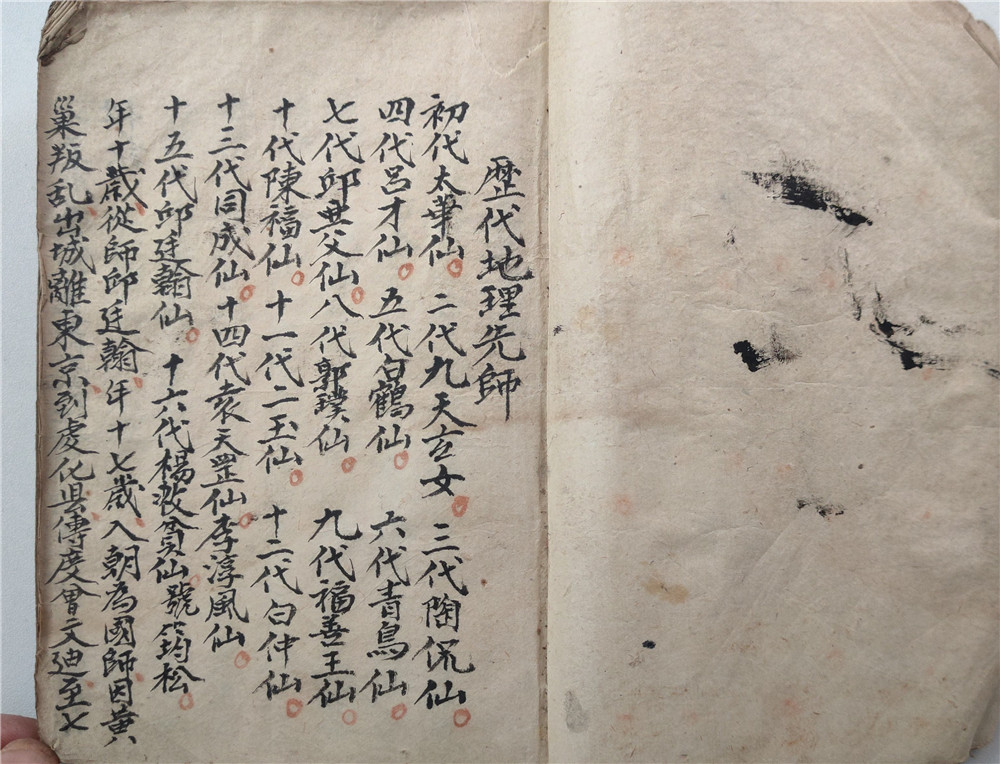 歷代地理先師
初代太華仙 二代九天玄女 三代陶侃仙
四代呂才仙 五代白鶴仙 六代青鳥仙
七代邱興父仙 八代郭璞仙 九代福善王仙
十代陳福仙 十一代二玉仙 十二代白仲仙
十三代同成仙 十四代袁天罡仙 李淳風仙
十五代邱廷翰仙 十六代楊救貧仙 號筠松
年十歲從師邱廷翰年十七歲入朝為國師因黄
巢叛乱出城離東京到虔化县傳度曾文迪至七